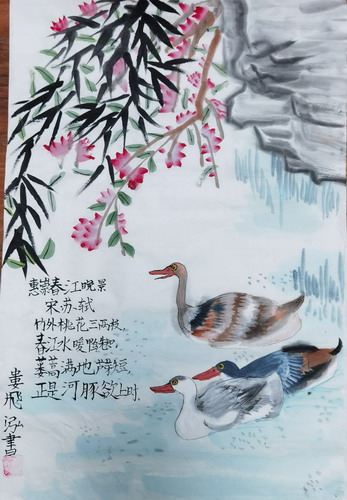 惠崇春江晚景
宋苏轼
竹外桃花三两枝,
春江水暖鸭先知。
蒌蒿满地芦芽短,
正是河豚欲上时.
娄飛写書